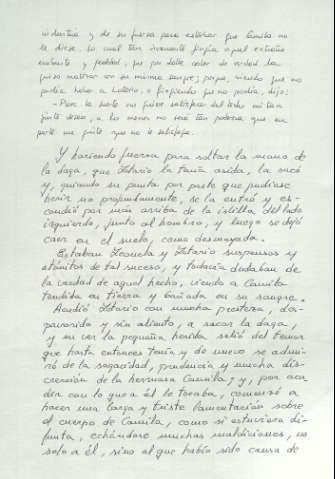 industria y de su fuerza para estorbar que Camila no
le diese, la cual tan vivamente fingía aquel extraño
embuste y fealdad, que por dalle color de verdad la
quiso matizar con su misma sangre; porque, viendo que no
podía haber a Lotario, o fingiendo que no podía, dijo:
- Pues la suerte no quiere satisfacer del todo mi tan
justo deseo, a lo menos no será tan poderosa que en
parte me quite que no le satisfaga.
Y haciendo fuerza para soltar la mano de
la daga, que Lotario la tenía asida, la sacó
y, guiando su punta por parte que pudiese
herir no profundamente, se la entró y es-
condió por más arriba de la islilla, del lado
izquierdo, junto al hombro, y luego se dejó
caer en el suelo, como desmayada.
Estaban Leonela y Lotario suspensos y
atónitos de tal suceso, y todavía dudaban de
la verdad de aquel hecho, viendo a Camila
tendida en tierra y bañada en su sangre.
Acudió Lotario con mucha presteza, des-
pavorido y sin aliento, a sacar la daga,
y en ver la pequeña herida salió del temor
que hasta entonces tenía y de nuevo se admi-
ró de la sagacidad, prudencia y mucha dis-
creción de la hermosa Camila; y, por acu
dir con lo que a él le tocaba, comenzó a
hacer una larga y triste lamentación sobre
el cuerpo de Camila, como si estuviera di-
funta, echándose muchas maldiciones, no
solo a él, sino al que había sido causa de